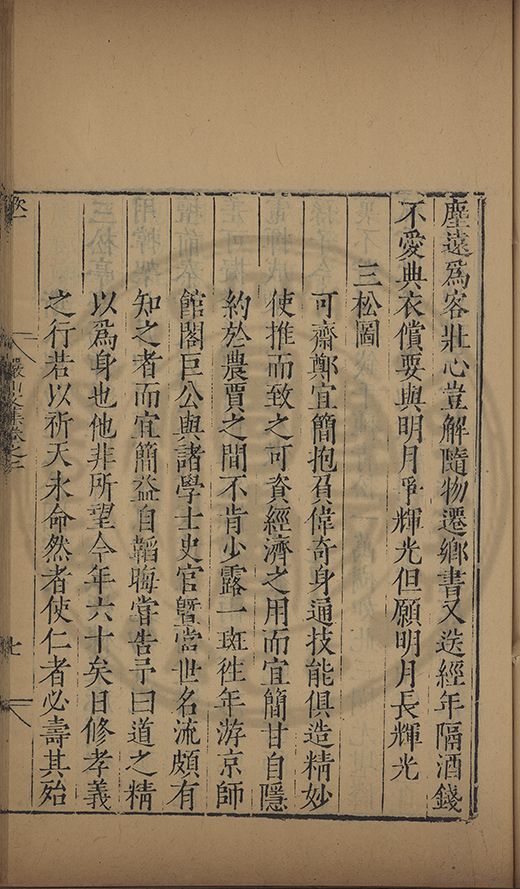 塵遠爲客壯心豈解隨物遷鄉書又迭經年隔酒錢
不愛典衣償要與明月爭輝光但願明月長輝光
三松圖
可齋鄭宜簡抱負偉奇身通技能俱造精妙
使推而致之可資經濟之用而宜簡甘自隱
約於農賈之間不肯少露一斑徃年游京師
館閣巨公與諸學士史官曁當世名流頗有
知之者而宜簡益自韜晦嘗告予曰道之精
以爲身也他非所望今年六十矣日修孝義
之行若以祈天永命然者使仁者必壽其殆
儼山文集卷之二
七